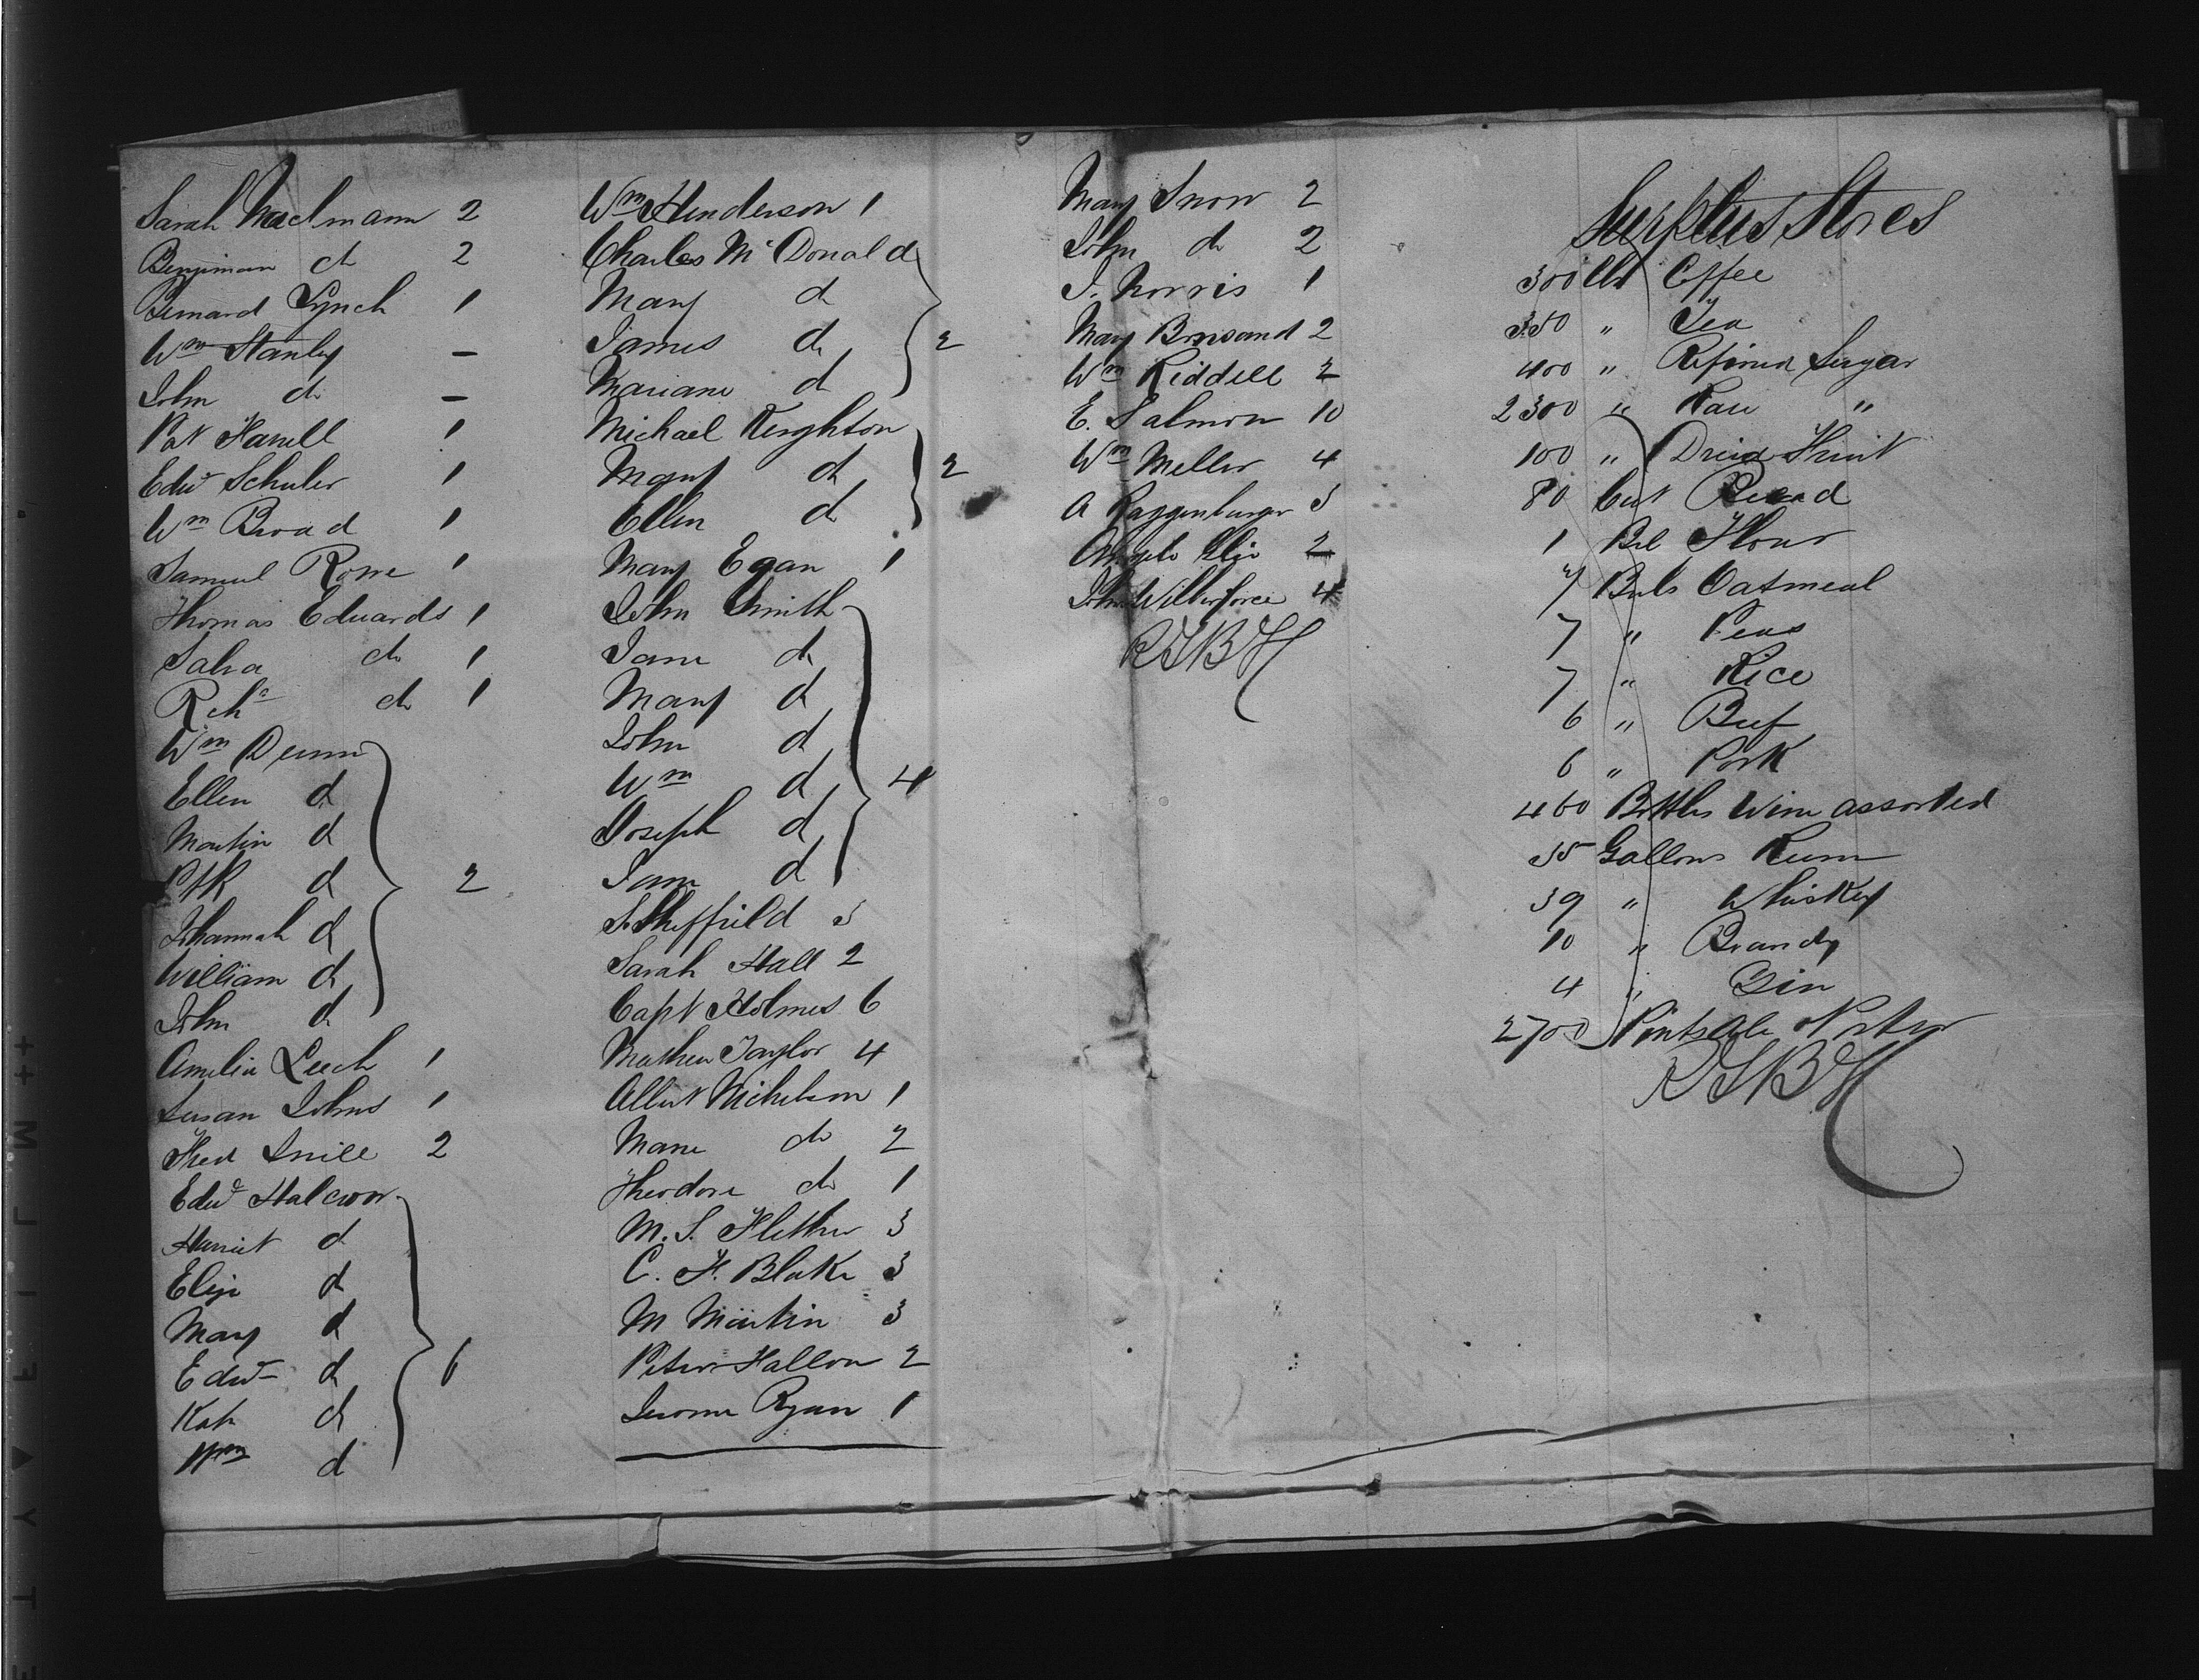 Sarah Maelmann 2
Benjiman do 2
Bernard Lynch 1
Wm Stanley –
John do –
Pat Harell 1
Edwd Schuler 1
Wm Broad 1
Samuel Rowe 1
Thomas Edwards 1
do 1
Richd do 1
Wm Dunn
Ellen d
Martin d
Ptk d
Johannah d
William d
John d
2
Amelia Leech 1
Susan Johns 1
Fred Snill 2
Edwd Halcwon
Harriet d
Eliza d
Mary d
Edwd d
Kate d
Wm d
6
Wm Henderson 1
Charles McDonald
Mary d
James do
Mariane d
2
Michael Keighton
Mary d
Ellen d
2
Mary Egan 1
John Smith
Jane d
Mary d
John d
Wm d
Joseph d
Jane d
4
S. Sheffield 3
Sarah Hall 2
Capt Holmes 6
Mathew Taylor 4
Albert Nichelson 1
Marie do 2
Theodore do 1
M. S. Flether 3
C. F. Blake 3
M Martin 3
Peter Fallon 2
Jerome Ryan 1
Mary Snow 2
John do 2
J. Norris 1
Mary 2
Wm Riddell 2
E. Salmon 10
Wm Meller 4
A Raggenburger 3
2
John Wilberforce 4
RSBH
Surplus Stores
300 lbs Coffee
350 " Tea
400 " Refined Sugar
2300 " Raw "
100 " Dried Fruit
80 Cwt Bread
1 Bl Flour
7 Bls Oatmeal
7 " Peas
7 " Rice
6 " Beef
6 " Pork
460 Bottles Wine assorted
35 Gallons Rum
39 " Whiskey
10 " Brandy
4 " Gin
2700 Pints Ale Porter
RSBH